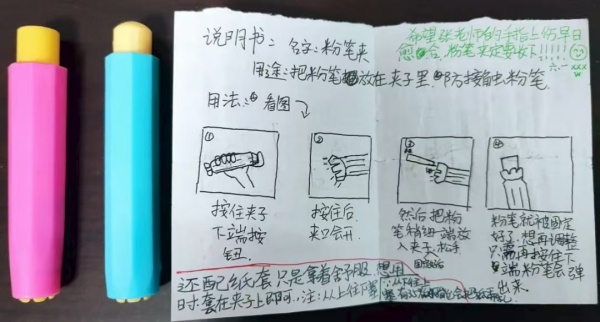 说明书:
名字:粉笔夹
用途:把粉笔放在夹子里,防接触粉笔.
用法:看图
希望张老师的手指上伤早日
愈合,粉笔夹定要收下!!!!!
六.一
①
②
③
④
按住夹子
下端按
钮.
按住后,
夹口会开.
然后把粉
笔稍细一端放
入夹子,松手
粉笔就被固定
好了.想再调整
只需再按住下
端粉笔会弹
出来.
还配纸套只是拿着舒服,想用
时套在夹子上即可.注:从上往下套